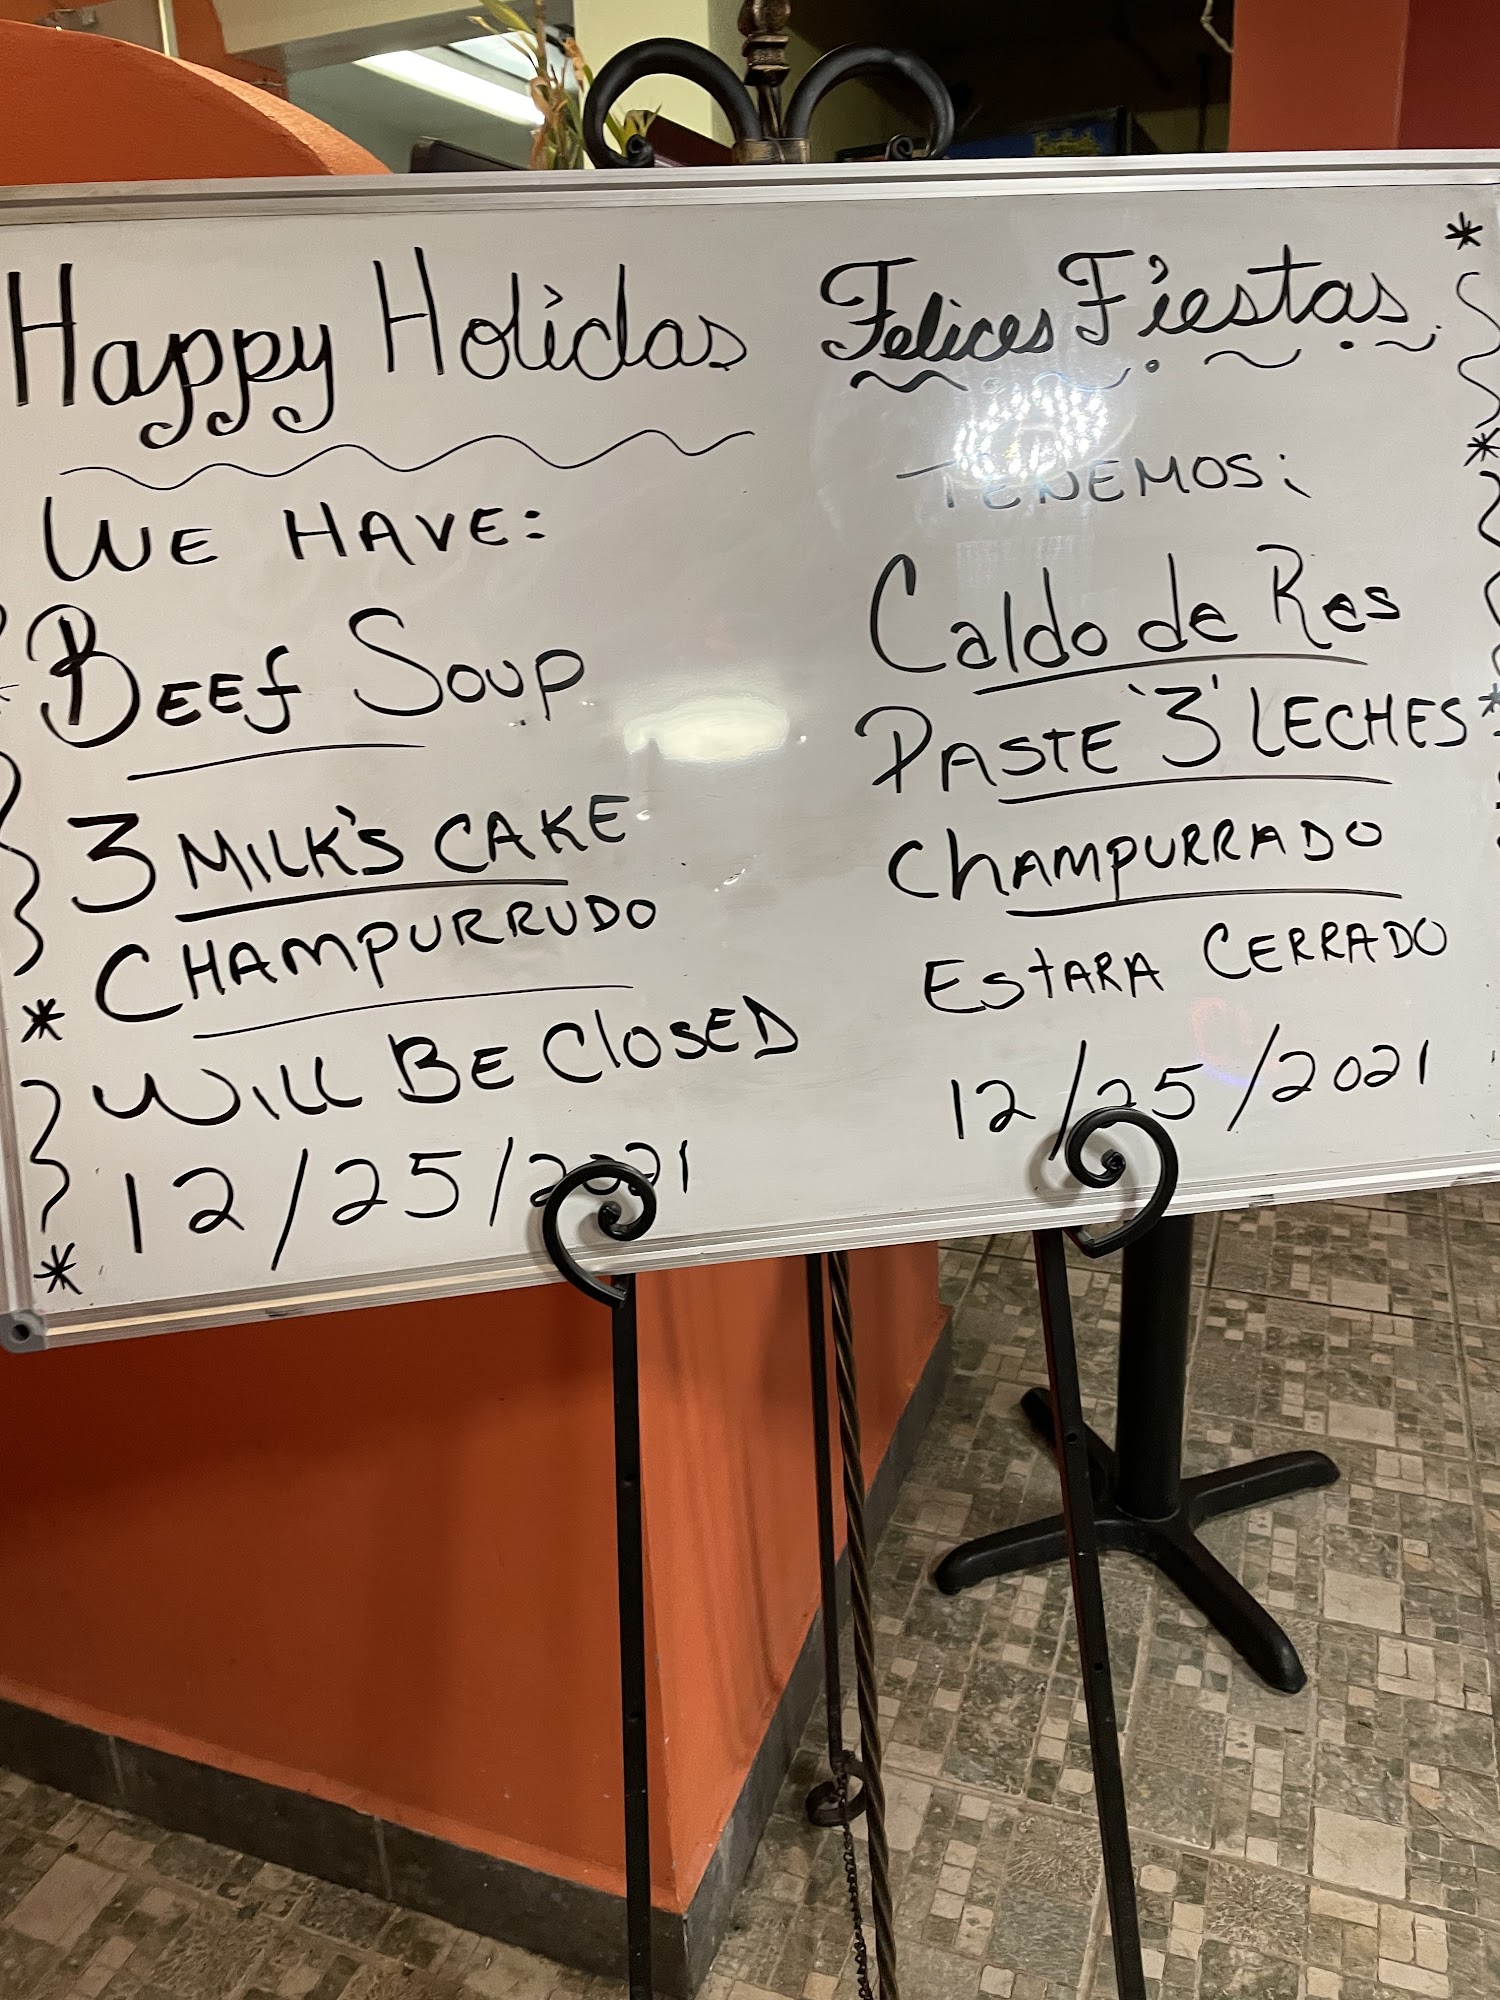 Happy Holidas
WE HAVE:
BEEf Soup
3 MILK'S CAKE
CHAMPURRUDO
WILL BE ClOSED
12/25/2021
Felices Fiestas
TENEMOS:
Caldo de Res
PASTE '3' LECHES
ChAMPURRADO
EStARA CERRADO
12/25/2021